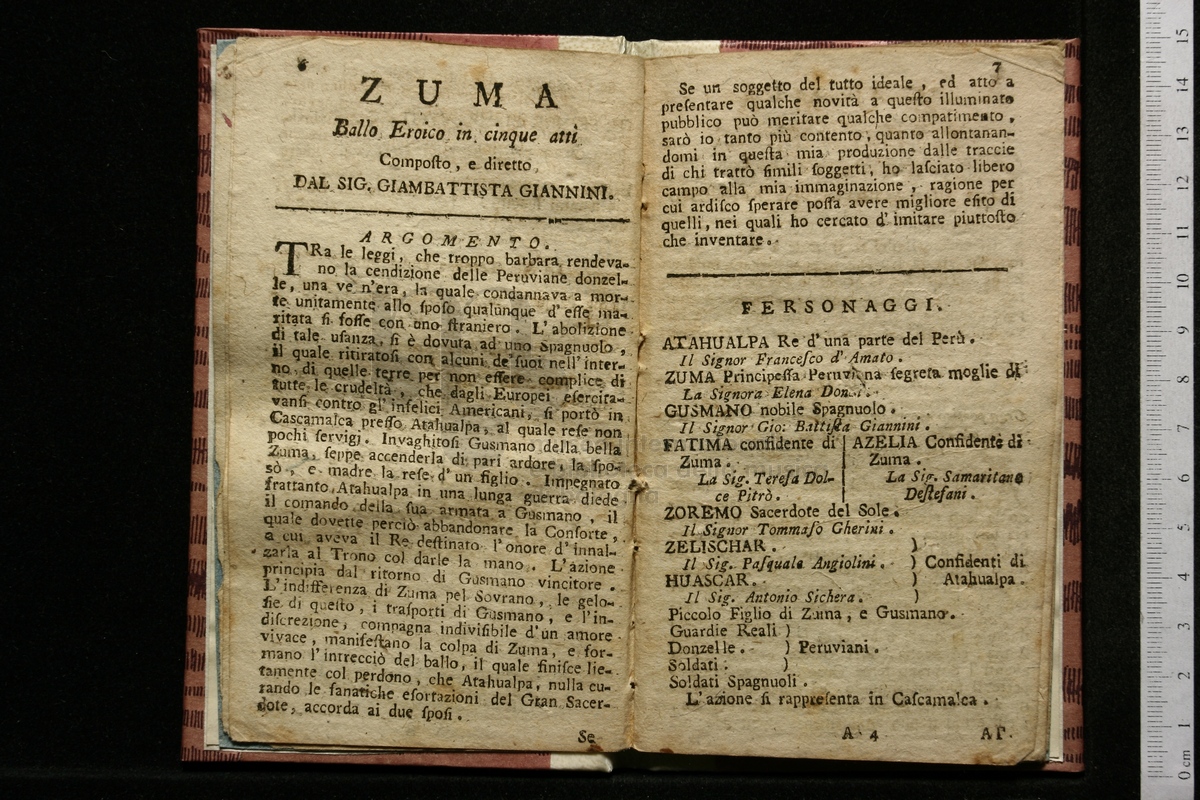 6
ZUMA
Ballo Eroico in cinque atti
Compoſto, e diretto,
DAL SIG. GIAMBATTISTA GIANNINI.
ARGOMENTO.
TRa le leggi, che troppo barbara rendeva-
no la cendizione delle Peruviane donzel-
le, una ve n'era, la quale condannava a mor-
te unitamente allo ſpoſo qualunque d'eſſe ma-
ritata ſi foſſe con uno ſtraniero. L'abolizione
di tale uſanza, ſi è dovuta ad uno Spagnuolo,
il quale ritiratoſi con alcuni de'ſuoi nell'inter-
no di quelle terre per non eſſere complice di
tutte le crudeltà, che dagli Europei eſercita-
vanſi contro gl'infelici Americani, ſi portò in
Caſcamalca preſſo Atahualpa, al quale reſe non
pochi ſervigj. Invaghitoſi Guſmano della bella
Zuma, ſeppe accenderla di pari ardore, la ſpo-
sò, e madre la reſe d'un figlio. Impegnato
frattanto Atahualpa in una lunga guerra diede
il comando della ſua armata a Guſmano, il
quale dovette perciò abbandonare la Conſorte,
a cui aveva il Re deſtinato l'onore d'innal-
zarla al Trono col darle la mano. L'azione
principia dal ritorno di Guſmano vincitore.
L'indifferenza di Zuma pel Sovrano, le gelo-
ſie di queſto, i traſporti di Guſmano, e l'in-
diſcrezione, compagna indiviſibile d'un amore
vivace, manifeſtano la colpa di Zuma, e for-
mano l'intrecciò del ballo, il quale finiſce lie-
tamente col perdono, che Atahualpa, nulla cu-
rando le fanatiche eſortazioni del Gran Sacer-
dote, accorda ai due ſpoſi.
Se
7
Se un soggetto del tutto ideale, ed atto a
preſentare qualche novità a queſto illuminato
pubblico può meritare qualche compatimento,
sarò io tanto più contento, quanto allontanan-
domi in queſta mia produzione dalle traccie
di chi trattò ſimili ſoggetti, ho laſciato libero
campo alla mia immaginazione, ragione per
cui ardiſco ſperare poſſa avere migliore eſito di
quelli, nei quali ho cercato d'imitare piuttoſto
che inventare.
FERSONAGGI.
ATAHUALPA Re d'una parte del Perù.
Il Signor Franceſco d'Amato.
ZUMA Principeſſa Peruviana ſegreta moglie di
La Signora Elena
GUSMANO nobile Spagnuolo.
Il Signor Gio: Battiſta Giannini.
FATIMA confidente di
Zuma.
La Sig. Tereſa Dol-
ce Pitrò.
AZELIA Confidente di
Zuma.
La Sig. Samaritana
Deſtefani.
ZOREMO Sacerdote del Sole.
Il Signor Tommaſo Gherini.
ZELISCHAR. )
Il Sig. Paſquale Angiolini. ) Confidenti di
HUASCAR. ) Atahualpa.
Il Sig. Antonio Sichera. )
Piccolo Figlio di Zuma, e Guſmano.
Guardie Reali )
Donzelle. ) Peruviani.
Soldati. )
Soldati Spagnuoli.
L'azione ſi rappreſenta in Caſcamalca.
A 4
AT.
0 cm 1 2 3 4 5 6 7 8 9 10 11 12 13 14 15